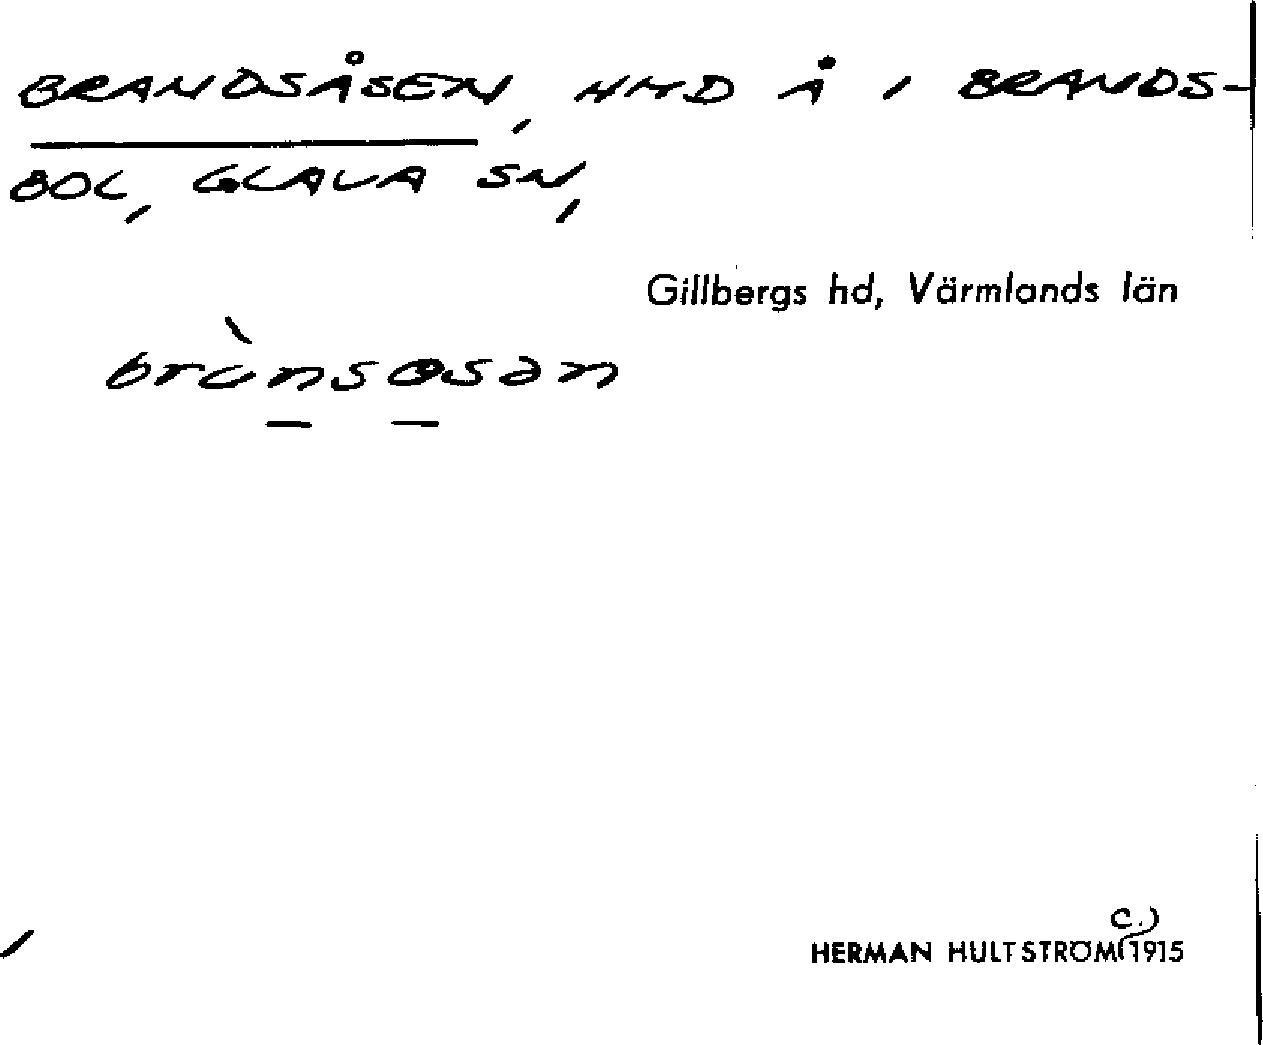 BRANDSÅSEN, HMD Å I BRANDS-
BOL, GLAVA SN,
Gillbergs hd, Värmlands län
brànsɷsən
HERMAN HULTSTRÖM (C.) 1915